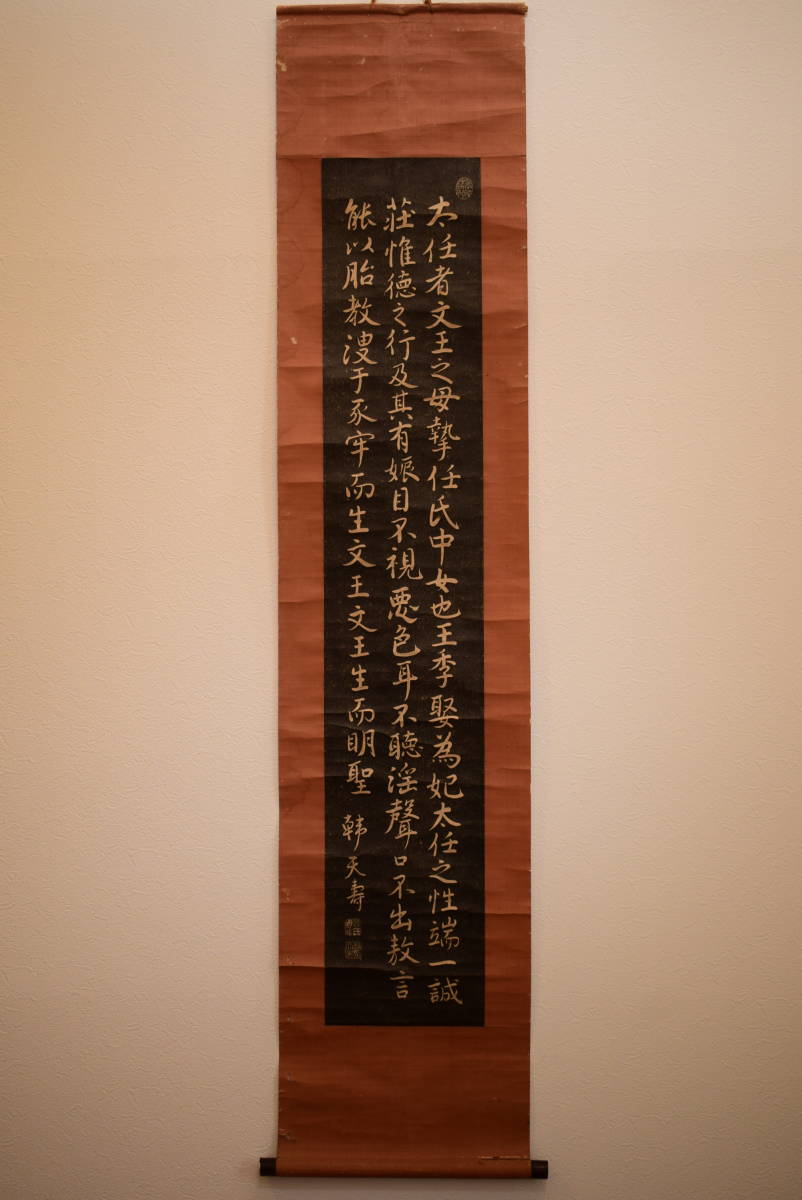 太任者文王之母摯任氏中女也王季娶為妃太任之性端一誠
莊惟德之行及其有娠目不視惡色耳不聽淫聲口不出敖言
能以胎教溲于豕牢而生文王文王生而明聖 韓天壽